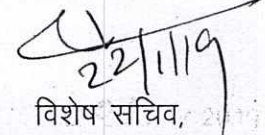 22/1/19
विशेष सचिव,